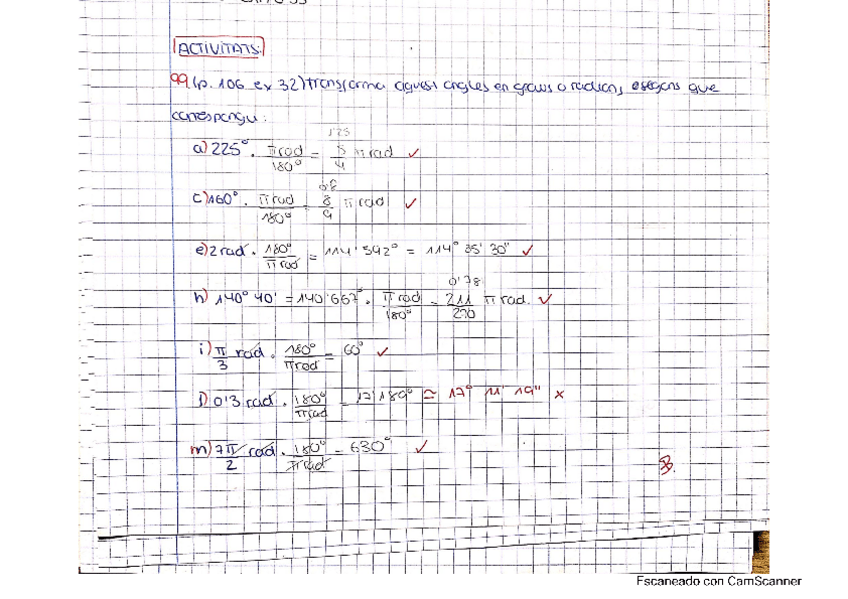 ACTIVITATS:
99.(p. 106 ex 32) transforma aquests angles en graus o radians, segons que
correspongui:
1'25
a) 225° · πrad/180° = 5/4 π rad ✓
c) 160° · πrad/180° = 8/9 π rad ✓
e) 2 rad · 180°/πrad = 114'592° = 114° 35' 30" ✓
0'78
h) 140° 40' = 140'667° · πrad/180° = 211/270 π rad. ✓
i) π/3 rad · 180°/πrad = 60° ✓
l) 0'3 rad · 180°/πrad = 17'189° ≃ 17° 11' 19" ×
m) 7π/2 rad · 180°/πrad = 630° ✓
Escaneado con CamScanner